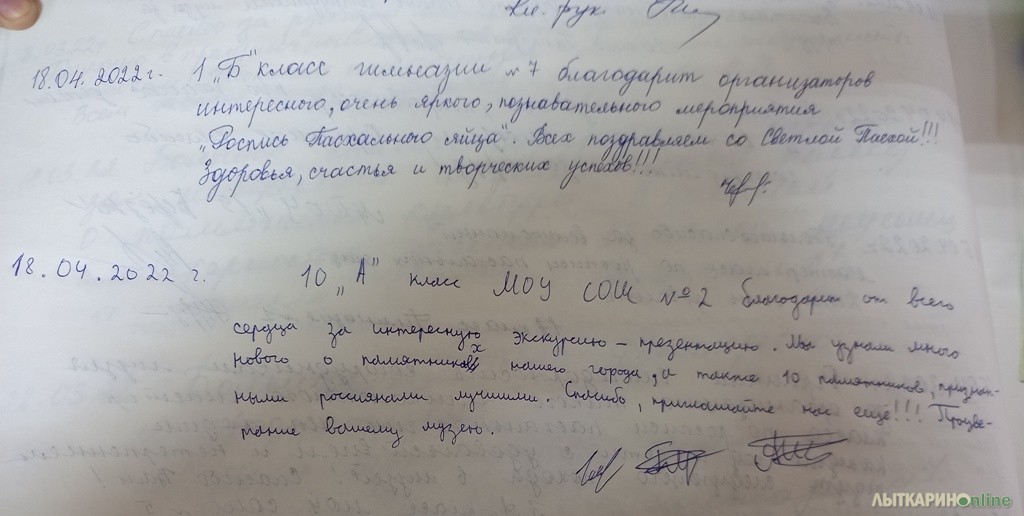 Кл. рук.
18.04.2022г. 1 „Б" класс гимназии №7 благодарит организаторов
интересного, очень яркого, познавательного мероприятия
„Роспись Пасхального яйца". Всех поздравляем со Светлой Пасхой!!!
Здоровья, счастья и творческих успехов!!!
18.04.2022 г. 10 „А" класс МОУ СОШ №2 благодарит от всего
сердца за интересную экскурсию – презентацию. Мы узнали много
нового о памятниках нашего города, а также 10 памятников, признан-
ными россиянами лучшими. Спасибо, приглашайте нас ещё!!! Процве-
тание вашему музею.
ЛЫТКАРИНОonline